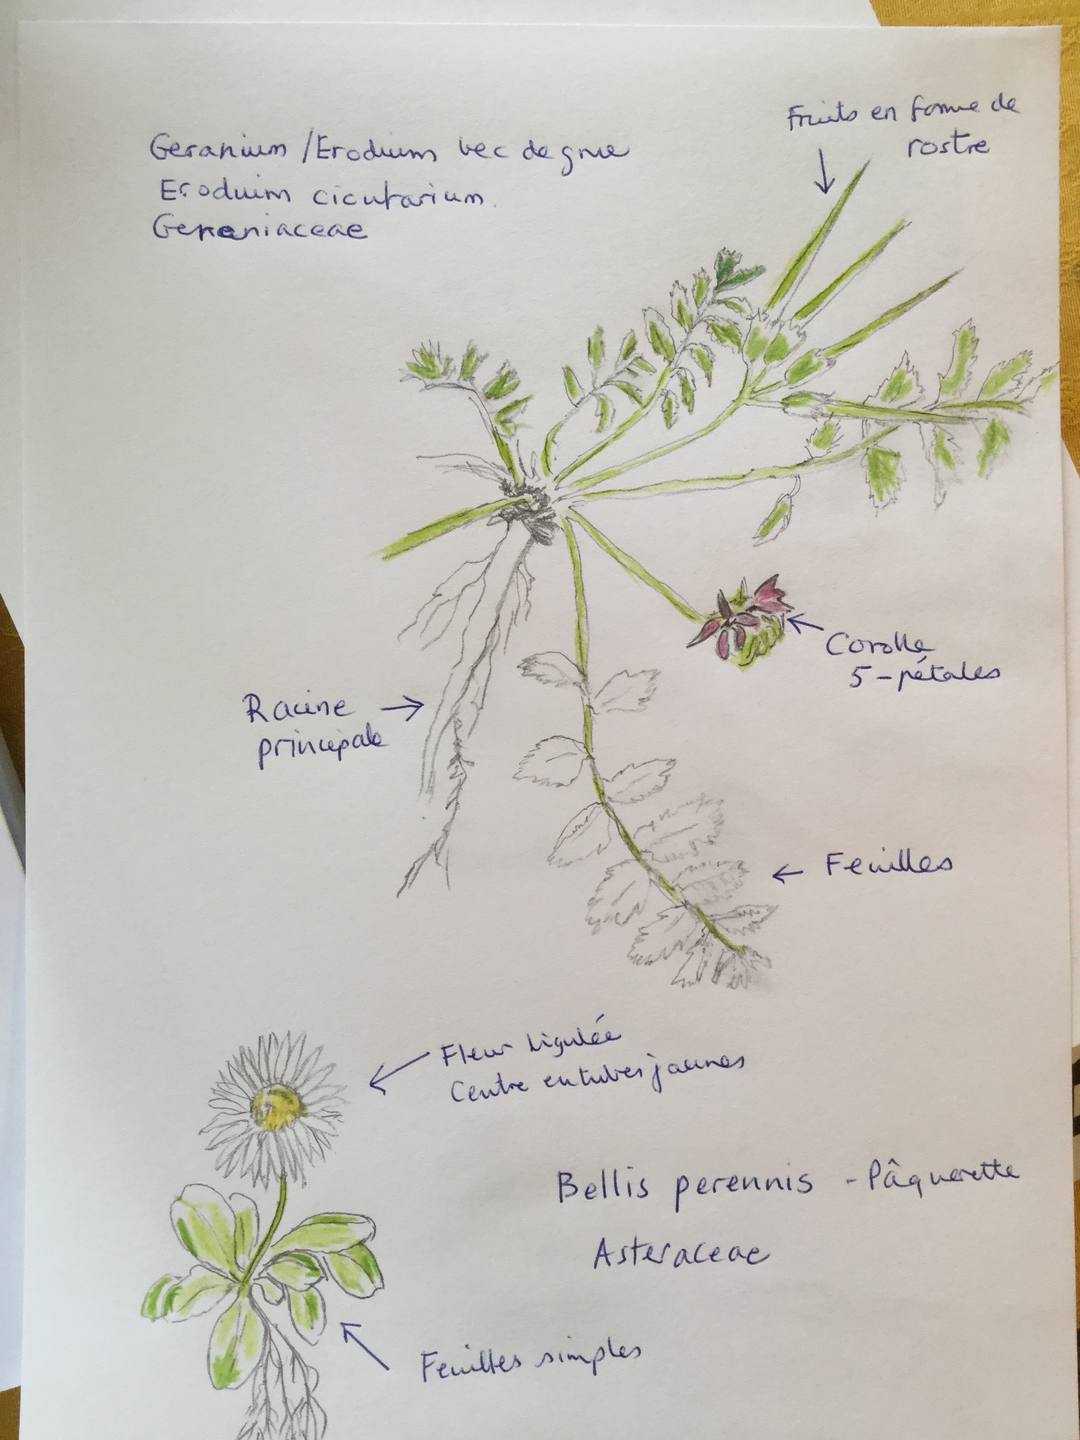 Fruits en forme de
rostre
Geranium / Erodium bec de grue
Eroduim cicutarium.
Geraniaceae
Corolle
5 - pétales
Racine
principale
Feuilles
Fleur Ligulée
Centre en tubes jaunes
Bellis perennis - Pâquerette
Asteraceae
Feuilles simples